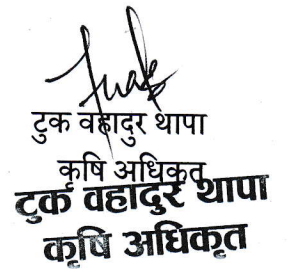 टुक वहादुर थापा
कृषि अधिकृत
टुक वहादुर थापा
कृषि अधिकृत